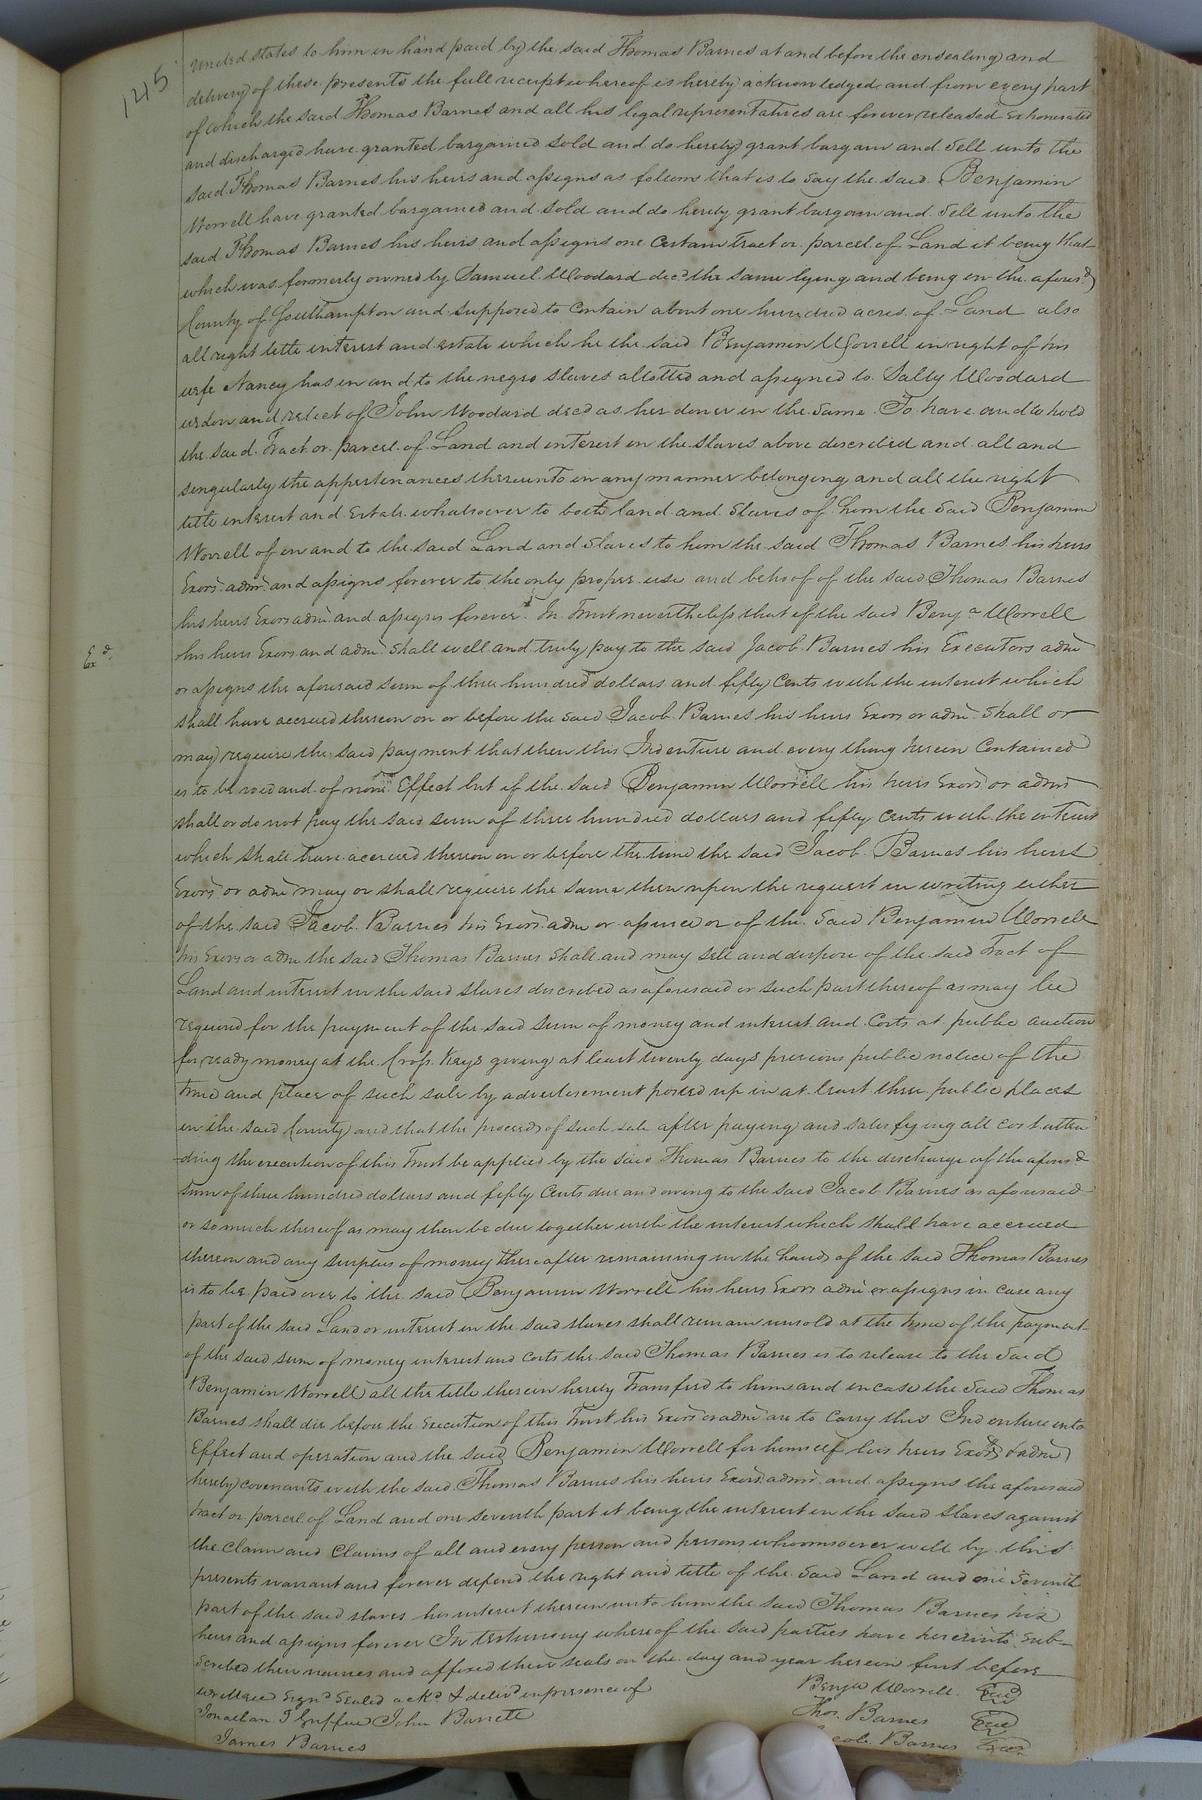 145
United States to him in hand paid by the said Thomas Barnes at and before the ensealing and
delivery of these presents the full receipt whereof is hereby acknowledged and from every part
of which the said Thomas Barnes and all his legal representatives are forever released Exhonerated
and discharged have granted bargained sold and do hereby grant bargain and Sell unto the
said Thomas Barnes his heirs and assigns as follows that is to say the said Benjamin
Worrell have granted bargained and sold and do hereby grant bargain and Sell unto the
said Thomas Barnes his heirs and assigns one Certain tract or parcel of Land it being that
which was formerly owned by Samuel Woodard decd the same lying and being in the aforesd
County of Southampton and supposed to Contain about one hundred acres of Land also
all right title interest and estate which he the said Benjamin Worrell in right of his
wife Nancy has in and to the negro slaves allotted and assigned to Sally Woodard
widow and relict of John Woodard decd as her dower in the same To have and to hold
the said Tract or parcel of Land and interest in the slaves above described and all and
singularly the appertenances thereunto in any manner belonging and all the right
title interest and Estate whatsoever to both land and Slaves of him the said Benjamin
Worrell of in and to the said Land and Slaves to him the said Thomas Barnes his heirs
Exors admr and assigns forever to the only proper use and behoof of the said Thomas Barnes
his heirs Exors adm and assigns forever In Trust nevertheless that if the said Benja Worrell
Exd
his heirs Exors and adm Shall well and truly pay to the said Jacob Barnes his Executors adm
or assigns the aforesaid sum of three hundred dollars and fifty Cents with the interest which
shall have accrued thereon on or before the said Jacob Barnes his heirs Exors or adm Shall or
may require the said payment that then this Indenture and every thing herein Contained
is to be void and of none Effect but if the said Benjamin Worrell his heirs Exors or admr
shall or do not pay the said sum of three hundred dollars and fifty Cents with the interest
which shall have accrued thereon on or before the time the said Jacob Barnes his heirs
Exors or adm may or shall require the same then upon the request in writing either
of the said Jacob Barnes his Exors adm or or of the Said Benjamin Worrell
his Exors or adm the said Thomas Barnes Shall and may sell and dispose of the said Tract of
Land and interest in the said slaves described as aforesaid or such part thereof as may be
required for the payment of the said Sum of money and interest and Costs at public auction
for ready money at the Cross Keys giving at least twenty days previous public notice of the
time and place of such sale by advertisement posted up in at least three public places
in the said County and that the proceeds of such sale after paying and satisfying all cost atten
-ding the execution of this Trust be applied by the said Thomas Barnes to the discharge of the aforesd
sum of three hundred dollars and fifty Cents due and owing to the said Jacob Barnes as aforesaid
or so much thereof as may then be due together with the interest which Shall have accrued
thereon and any surplus of money thereafter remaining in the hands of the said Thomas Barnes
is to be paid over to the said Benjamin Worrell his heirs Exors adm or assigns in Case any
part of the said Land or interest in the said slaves shall remain unsold at the time of the payment
of the said sum of money interest and Costs the said Thomas Barnes is to release to the Said
Benjamin Worrell all the title therein hereby Transferd to him and in case the Said Thomas
Barnes shall die before the Execution of this Trust his Exors or adm are to Carry this Indenture into
Effect and operation and the said Benjamin Worrell for himself his heirs Exors & adm
hereby covenants with the said Thomas Barnes his heirs Exors admr and assigns the aforesaid
tract or parcel of Land and one seventh part it being the interest in the said Slaves against
the Claim and Claims of all and every person and persons whomsoever will by this
presents warrant and forever defend the right and title of the Said Land and one Seventh
part of the said slaves his interest therein unto him the said Thomas Barnes his
heirs and assigns forever In testimony whereof the said parties have hereinto Sub-
scribed their names and affixed their seals on the day and year herein first before
written Signd Sealed ackd & delivd in presence of
Benja Worrell Seal
Jonathan T Griffin John Barrett
Thos. Barnes Seal
James Barnes
Jacob Barnes Seal